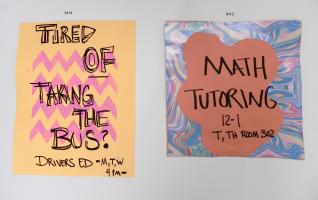 TIRED
OF
TAKING
THE
BUS?
DRIVERS ED - M, T, W
4 PM -
MATH
TUTORING
12-1
T, TH ROOM 302